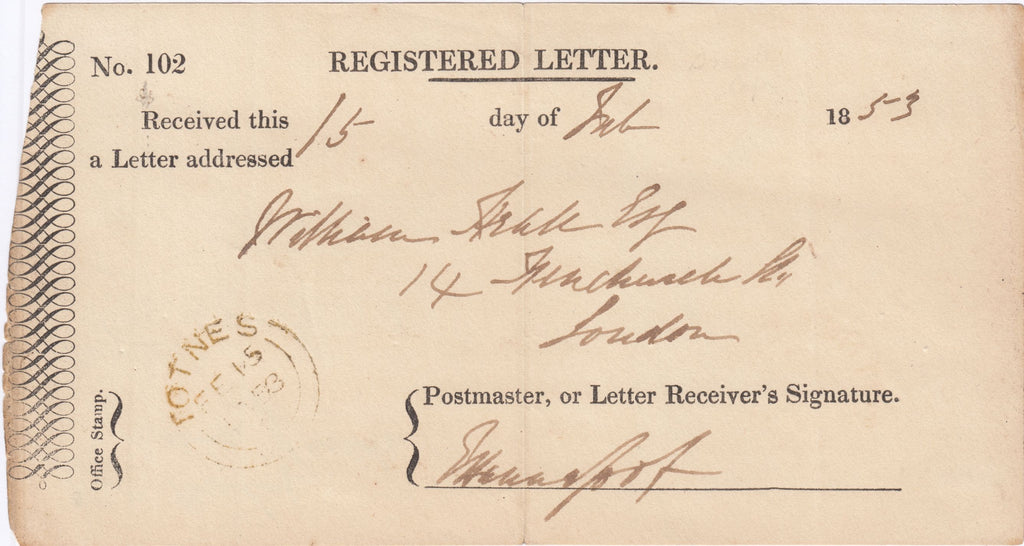 No. 102
REGISTERED LETTER.
Received this 15 day of Feb 1853
a Letter addressed
William Esq
14 Fenchurch St.
London
TOTNES
FE 15
Office Stamp.
Postmaster, or Letter Receiver's Signature.